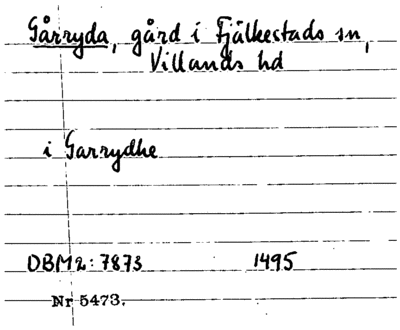 Gårryda, gård i Fjälkestads sn,
Villands hd
i Garrydhe
DBM2: 7873 1495
Nr 5473.